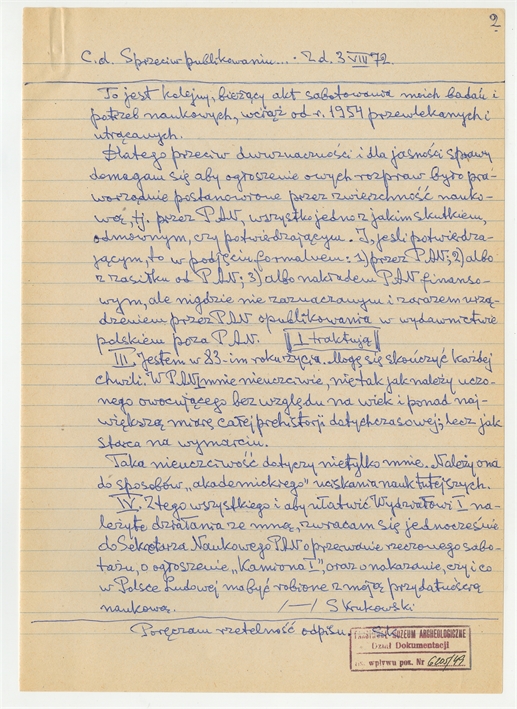 2
C.d. Sprzeciw publikowaniu... . Z d. 3 VIII 72.
To jest kolejny, bieżący akt sabotowania moich badań i
potrzeb naukowych, wciąż od r. 1954 przewlekanych i
utrącanych.
Dlatego przeciw dwuznaczności i dla jasności sprawy
domagam się aby ogłoszenie owych rozpraw było pra-
worządnie postanowione przez zwierzchność nauko-
wą, tj. przez PAN, wszystko jedno z jakim skutkiem,
odmownym, czy potwierdzającym. I, jeśli potwierdza-
jącym, to w podjęciu formalnem: 1) przez PAN; 2) albo
z zasiłku od PAN; 3) albo nakładem PAN finanso-
wym, ale nigdzie nie zaznaczanym i zarazem urzą-
dzeniem przez PAN opublikowania w wydawnictwie
polskiem poza PAN. I traktują
III. Jestem w 83-im roku życia. Mogę się skończyć każdej
chwili. W PAN mnie nieuczciwie, nie tak jak należy uczo-
nego owocującego bez względu na wiek i ponad naj-
większą miarę całej prehistorji dotychczasowej; lecz jak
starca na wymarciu.
Taka nieuczciwość dotyczy nietylko mnie. Należy ona
do sposobów „akademickrego" uciskania nauk tutejszych.
IV. Z tego wszystkiego i aby ułatwić Wydziałowi I na-
leżyte działania ze mną, zwracam się jednocześnie
do Sekretarza Naukowego PAN o przerwanie rzeczowego sabo-
tażu, o ogłoszenie „Kamiona I", oraz o nakazanie, czy i co
w Polsce Ludowej ma być robione z moją przydatnością
naukową. /—/ S Krukowski
Poręczam rzetelność odpisu.
PAŃSTWOWE MUZEUM ARCHEOLOGICZNE
Dział Dokumentacji
wpływu poz. Nr